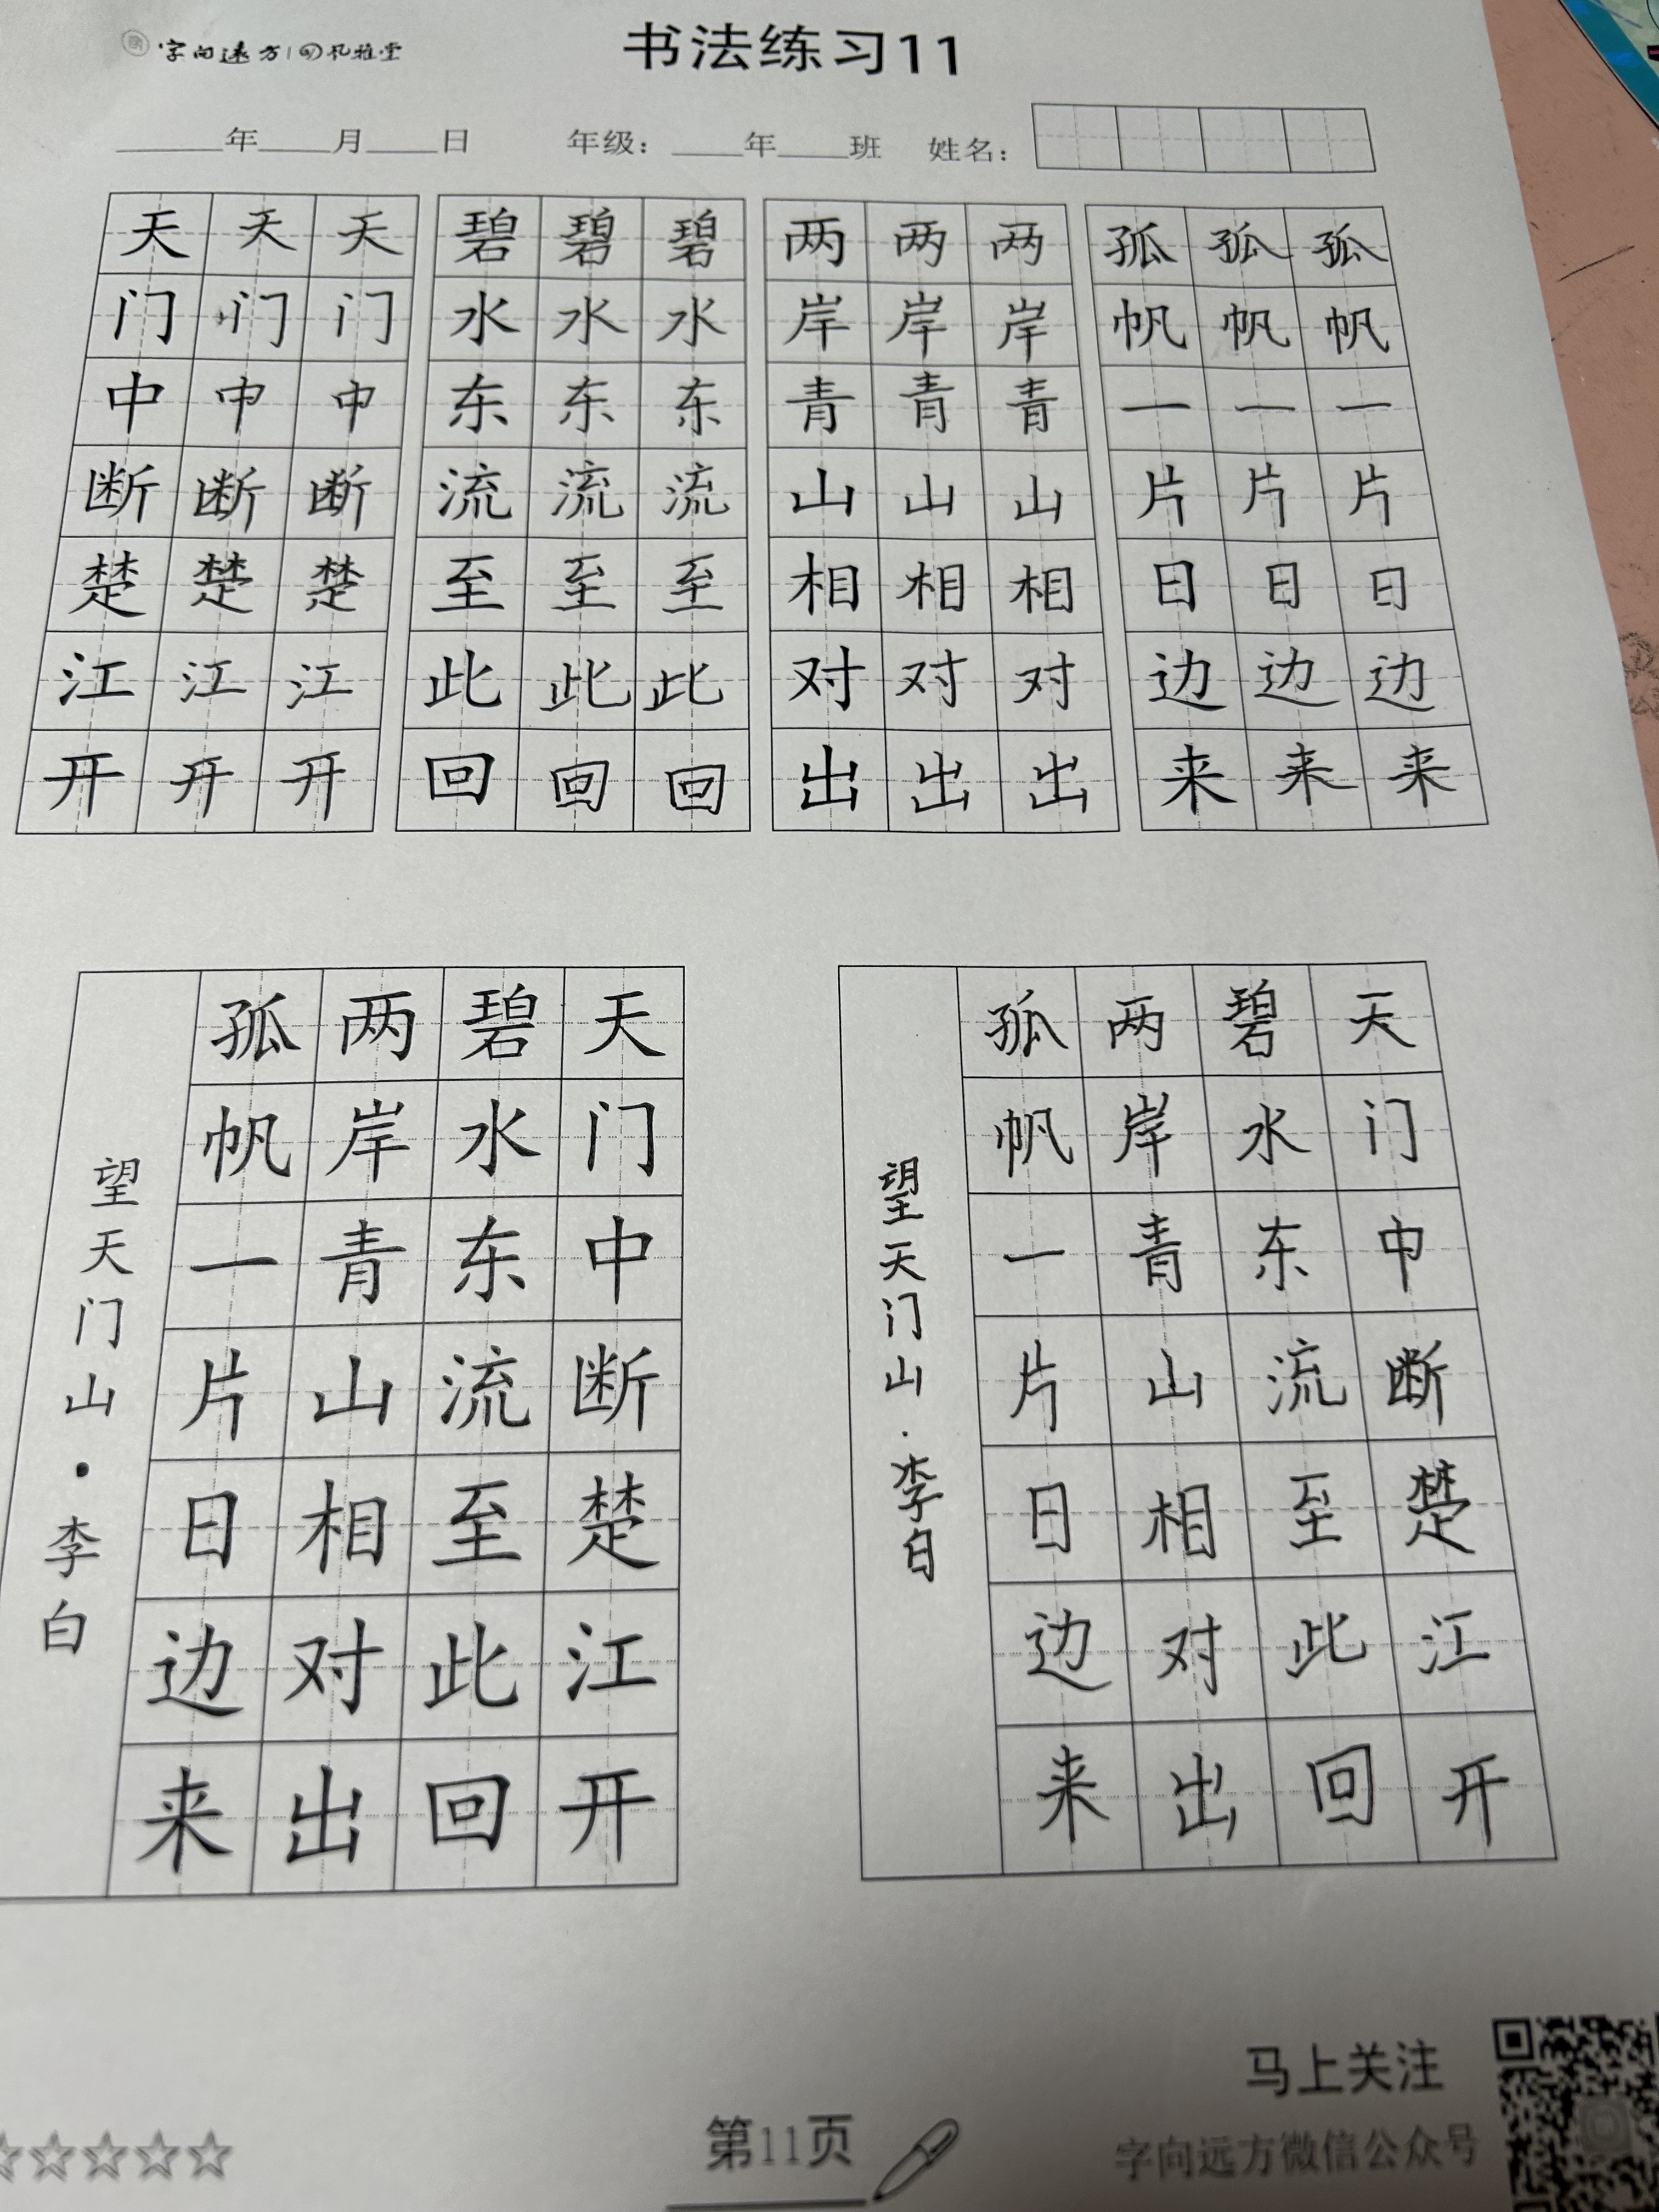 字向远方 | 风雅堂
书法练习11
年 月 日 年级： 年 班 姓名：
天 天 天 碧 碧 碧 两 两 两 孤 孤 孤
门 门 门 水 水 水 岸 岸 岸 帆 帆 帆
中 中 中 东 东 东 青 青 青 一 一 一
断 断 断 流 流 流 山 山 山 片 片 片
楚 楚 楚 至 至 至 相 相 相 日 日 日
江 江 江 此 此 此 对 对 对 边 边 边
开 开 开 回 回 回 出 出 出 来 来 来
天门中断楚江开
碧水东流至此回
两岸青山相对出
孤帆一片日边来
望天门山·李白
天门中断楚江开
碧水东流至此回
两岸青山相对出
孤帆一片日边来
望天门山·李白
马上关注
字向远方微信公众号
第11页